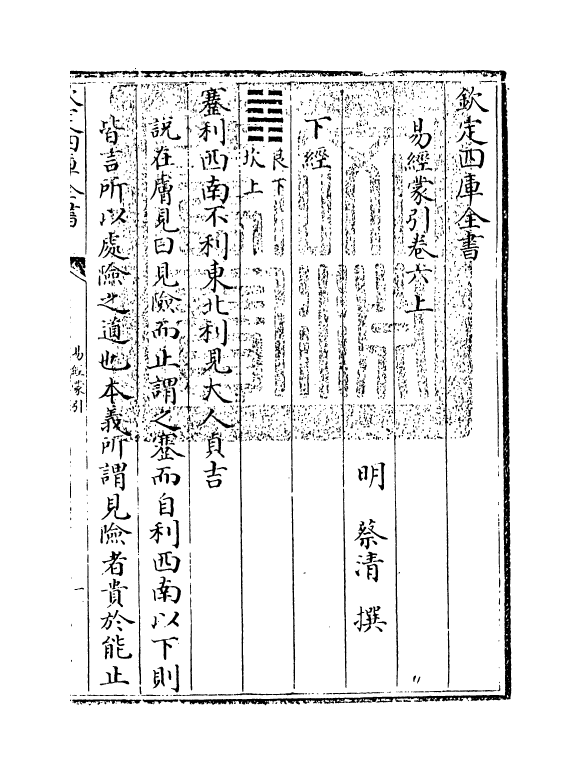 欽定四庫全書
易經蒙引卷六上
明 蔡清 撰
下經
艮下
坎上
蹇利西南不利東北利見大人貞吉
説在膚見曰見險而止謂之蹇而自利西南以下則
皆言所以處險之道也本義所謂見險者貴於能止
欽定四庫全書
易經蒙引
一